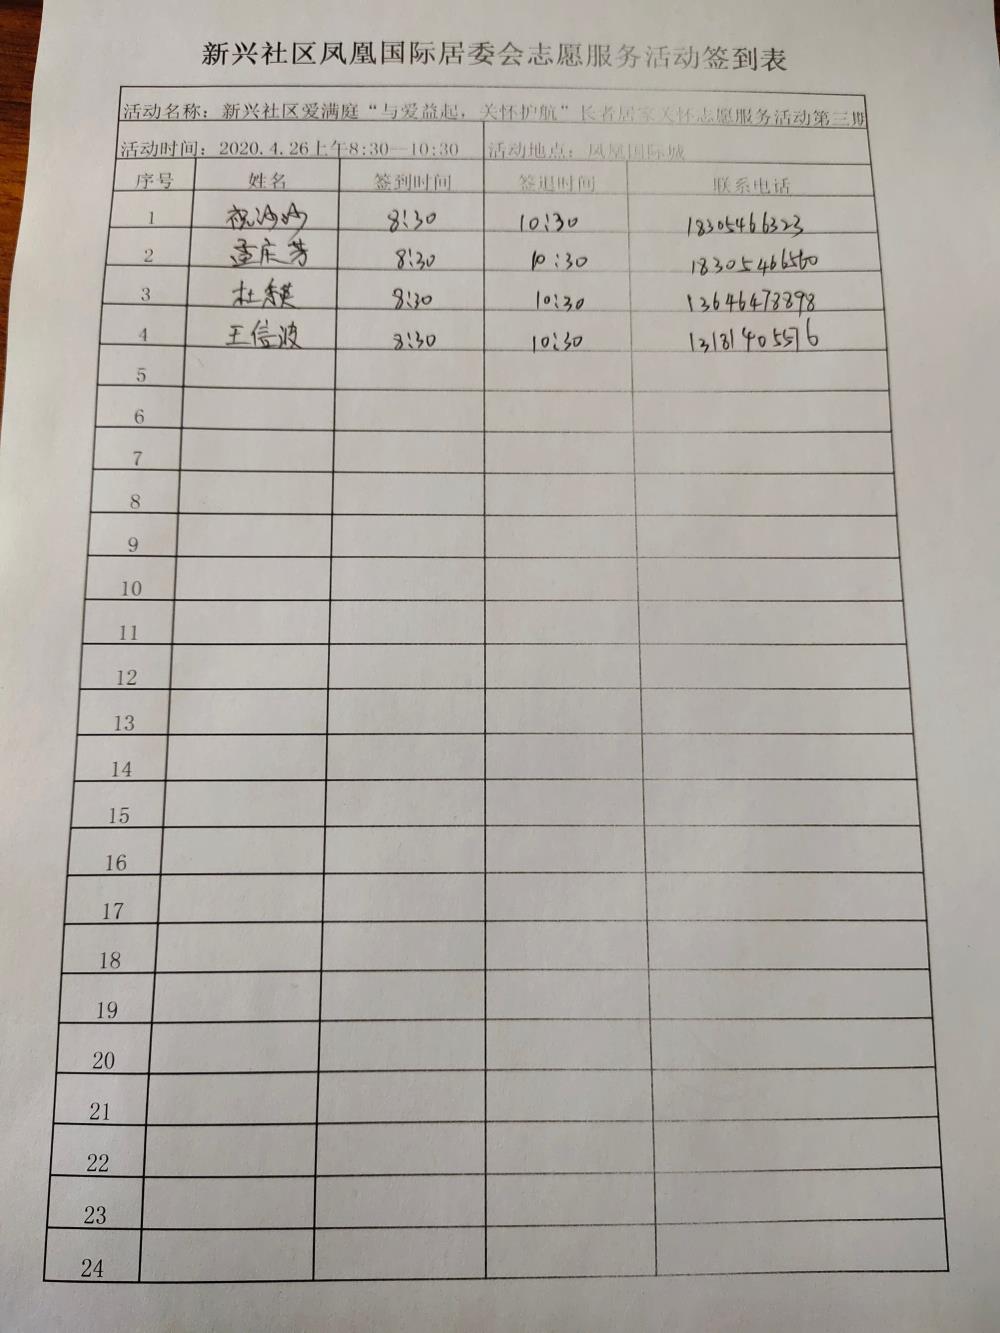 新兴社区凤凰国际居委会志愿服务活动签到表
活动名称：新兴社区爱满庭“与爱益起，关怀护航”长者居家关怀志愿服务活动第三期
活动时间：2020.4.26上午8:30—10:30 活动地点：凤凰国际城
序号 姓名 签到时间 签退时间 联系电话
1 祝沙沙 8:30 10:30 18305466323
2 孟庆芳 8:30 10:30 18305466560
3 杜秀英 8:30 10:30 13646478898
4 王信波 8:30 10:30 13181405576
5
6
7
8
9
10
11
12
13
14
15
16
17
18
19
20
21
22
23
24